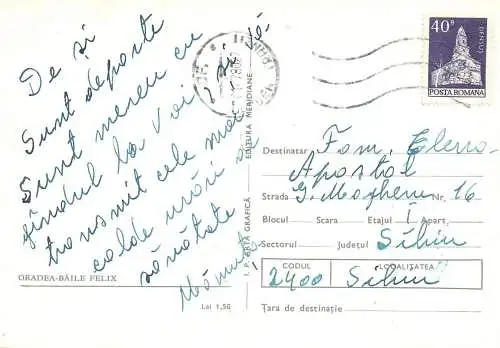 De și
sunt departe
sunt mereu cu
gîndul la voi vă
transmit cele mai
calde urări de
sănătate
ORADEA-BĂILE FELIX
Lei 1,50
I. P. ARTA GRAFICĂ
EDITURA MERIDIANE
40B
DENSUȘ
POSTA ROMANA
Destinatar Fam. Elena
Apostol
Strada G. Magheru Nr. 16
Blocul Scara Etajul 1 Apart.
Sectorul Județul Sibiu
CODUL LOCALITATEA
2400 Sibiu
Țara de destinație